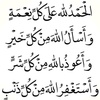 الْحَمْدُ لِلّٰهِ عَلَىٰ كُلِّ نِعْمَةٍ
وَأَسْأَلُ اللّٰهَ مِنْ كُلِّ خَيْرٍ
وَأَعُوذُ بِاللّٰهِ مِنْ كُلِّ شَرٍّ
وَأَسْتَغْفِرُ اللّٰهَ مِنْ كُلِّ ذَنْبٍ